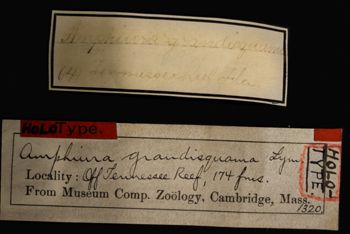 Amphiura grandisquama
(4)
HOLOType.
Amphiura grandisquama Lym
Locality: Off Tennessee Reef, 174 fms.
From Museum Comp. Zoölogy, Cambridge, Mass.
HOLO-
TYPE
1320